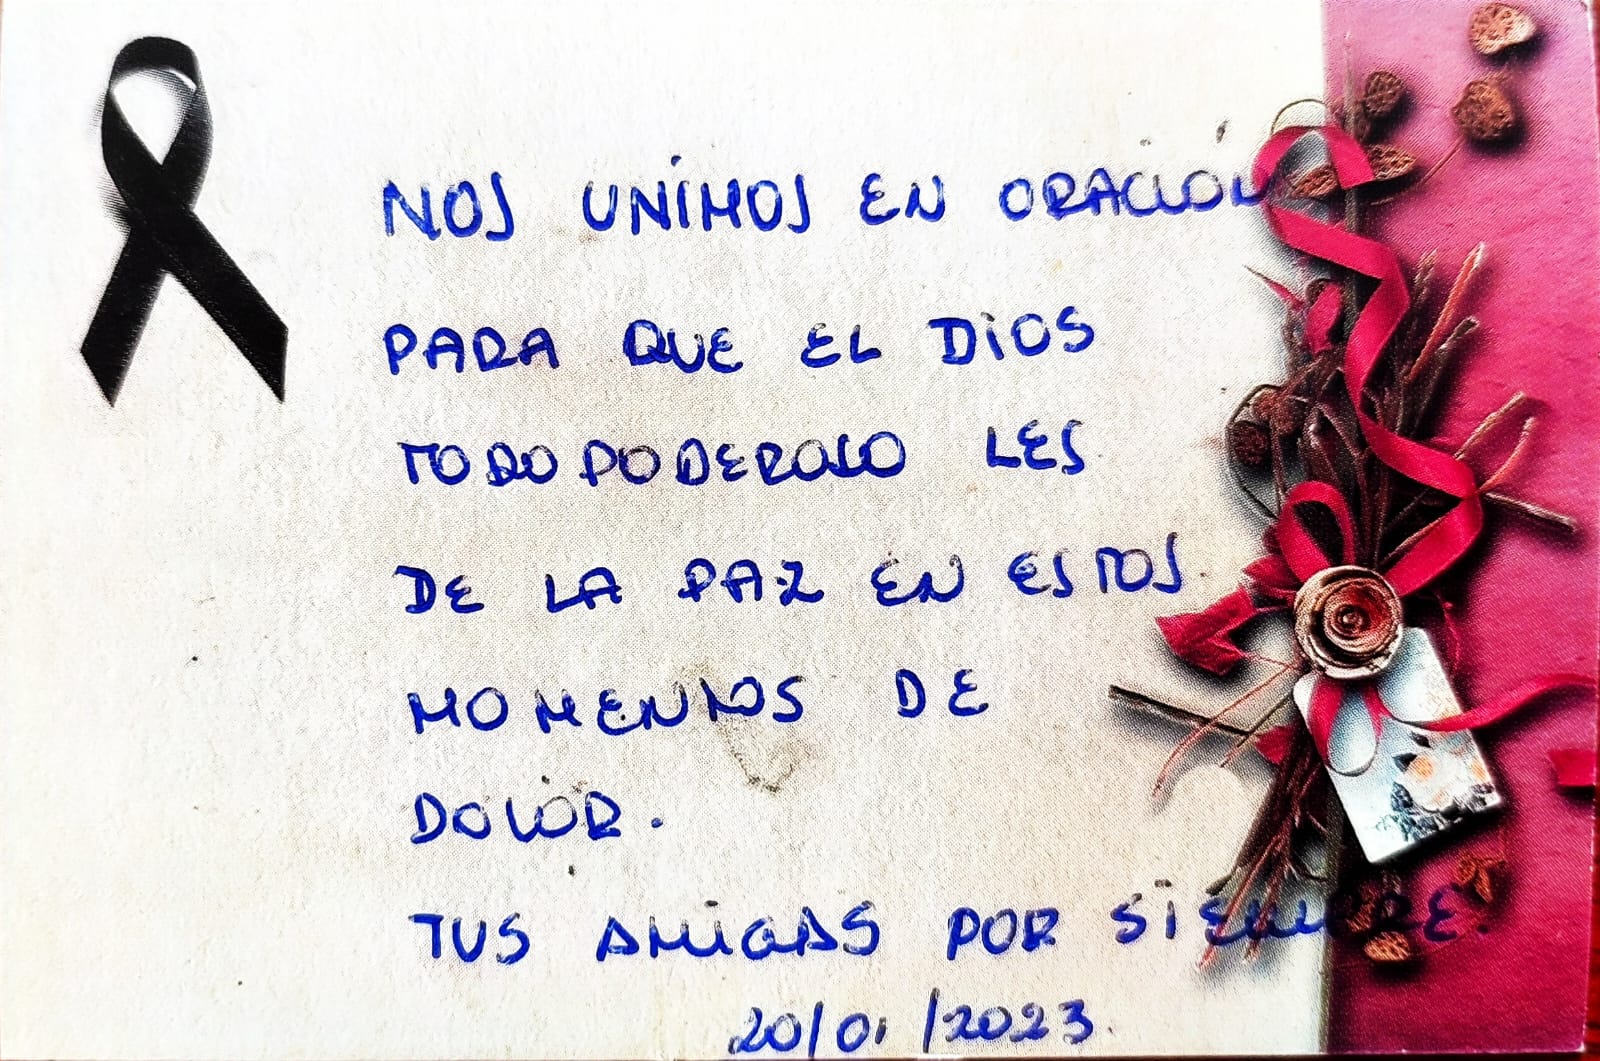 NOS UNIMOS EN ORACIÓN
PARA QUE EL DIOS
TODOPODEROSO LES
DE LA PAZ EN ESTOS
MOMENTOS DE
DOLOR.
TUS AMIGAS POR SIEMPRE.
20/01/2023.